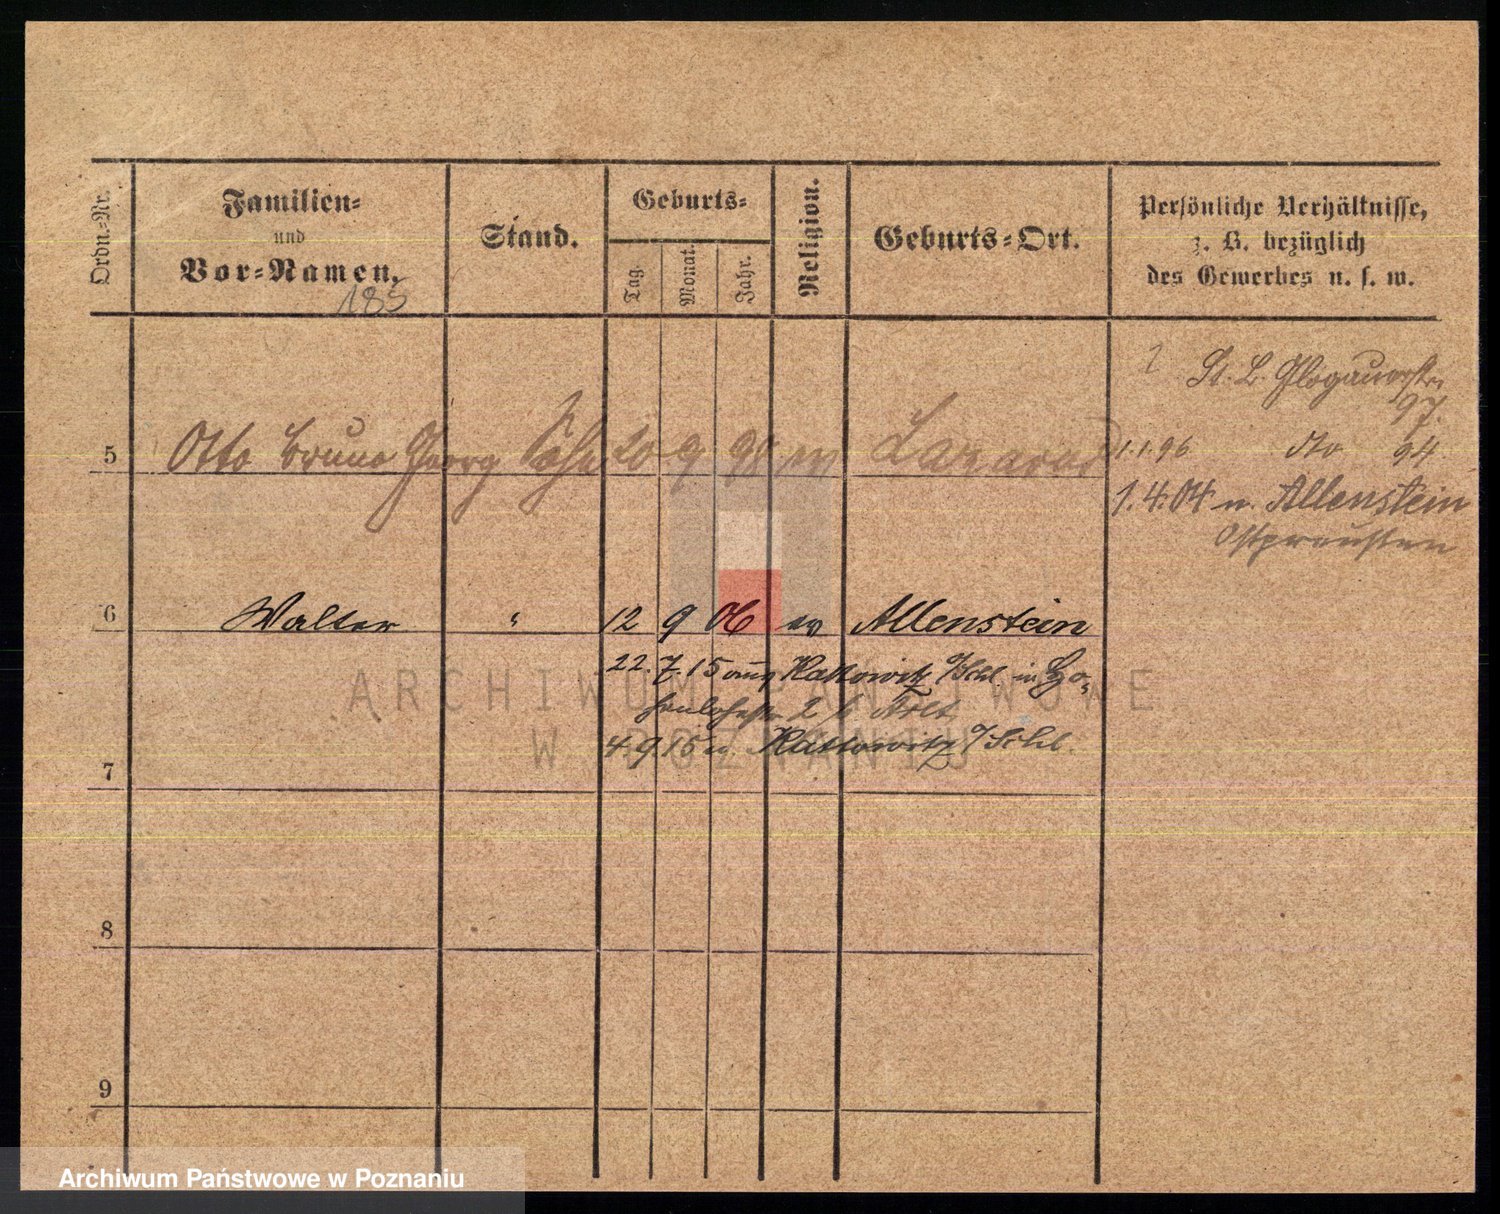 Ordn.-Nr.
Familien-
und
Vor-Namen.
185
Stand.
Geburts-
Tag.
Monat.
Jahr.
Religion.
Geburts-Ort.
Persönliche Verhältnisse,
z. B. bezüglich
des Gewerbes u. s. w.
St. L. Glogauerstr.
97.
5 Otto Bruno Georg Sohn 20 9 98 ev
1.1.96 dto 94.
1.4.04 n. Allenstein
Ostpreußen
6 Walter " 12 9 06 ev Allenstein
22.7.15 aus Kattowitz O/Schl. in Ho-
henlohestr. 2 b
4.9.15 n. Kattowitz O/Schl.
7
8
9
ARCHIWUM PAŃSTWOWE
W POZNANIU
Archiwum Państwowe w Poznaniu